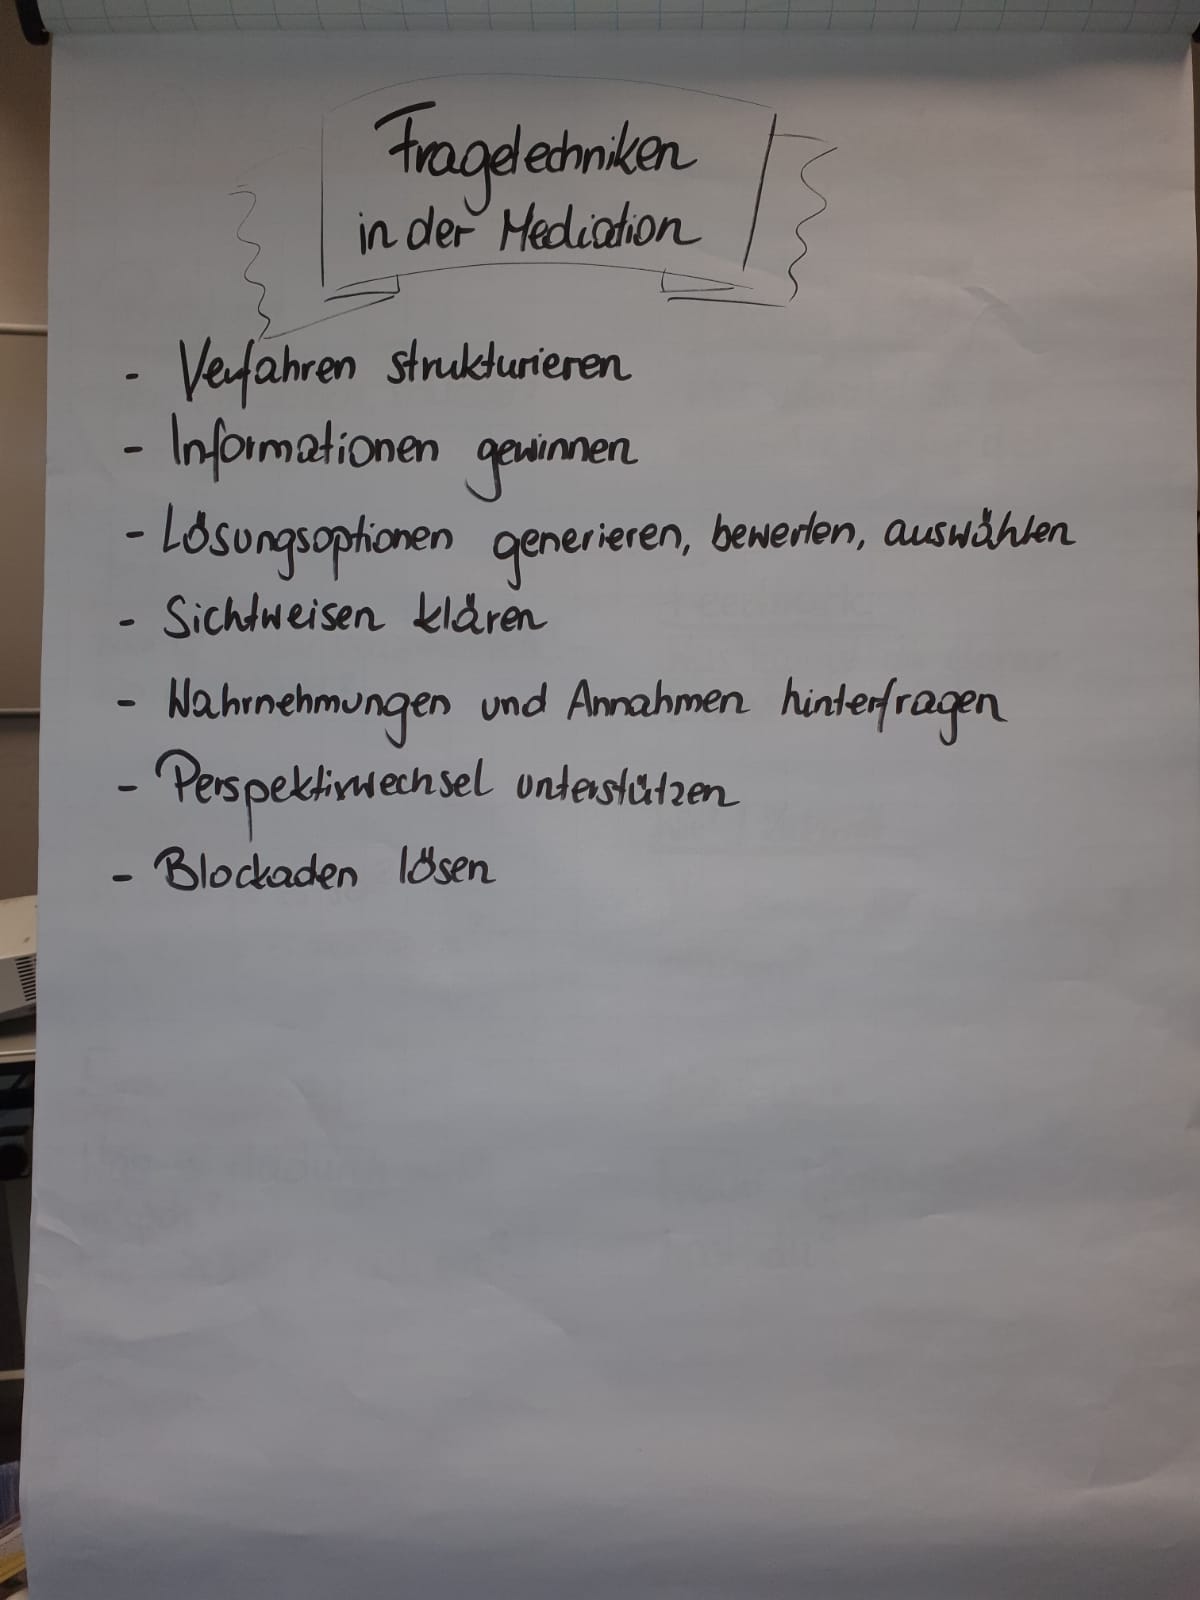 Fragetechniken
in der Mediation
- Verfahren strukturieren
- Informationen gewinnen
- Lösungsoptionen generieren, bewerten, auswählen
- Sichtweisen klären
- Wahrnehmungen und Annahmen hinterfragen
- Perspektivwechsel unterstützen
- Blockaden lösen